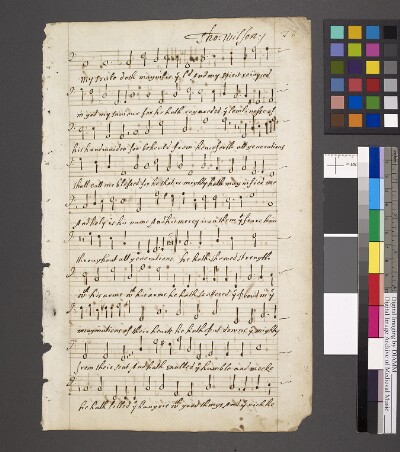 Tho: Wilson:
My soule doth magnifie ye Ld and my spirit reioyced
in god my saviour for he hath regarded ye lowlines of
his handmaiden for behould from henceforth all generations
shall call me blessed for he that is mighty hath magnified me
And holy is his name And his mercy is on them yt feare him
throughout all generations he hath shewed strength
wth his arme wth his arme he hath scattered ye proud in ye
imaginations of their hearts he hath put downe ye mighty
from their seat And hath exalted ye humble and meeke
he hath filled ye hungrie wth good things And ye rich he
Digital Imaging by DIAMM
Digital Image Archive of Medieval Music